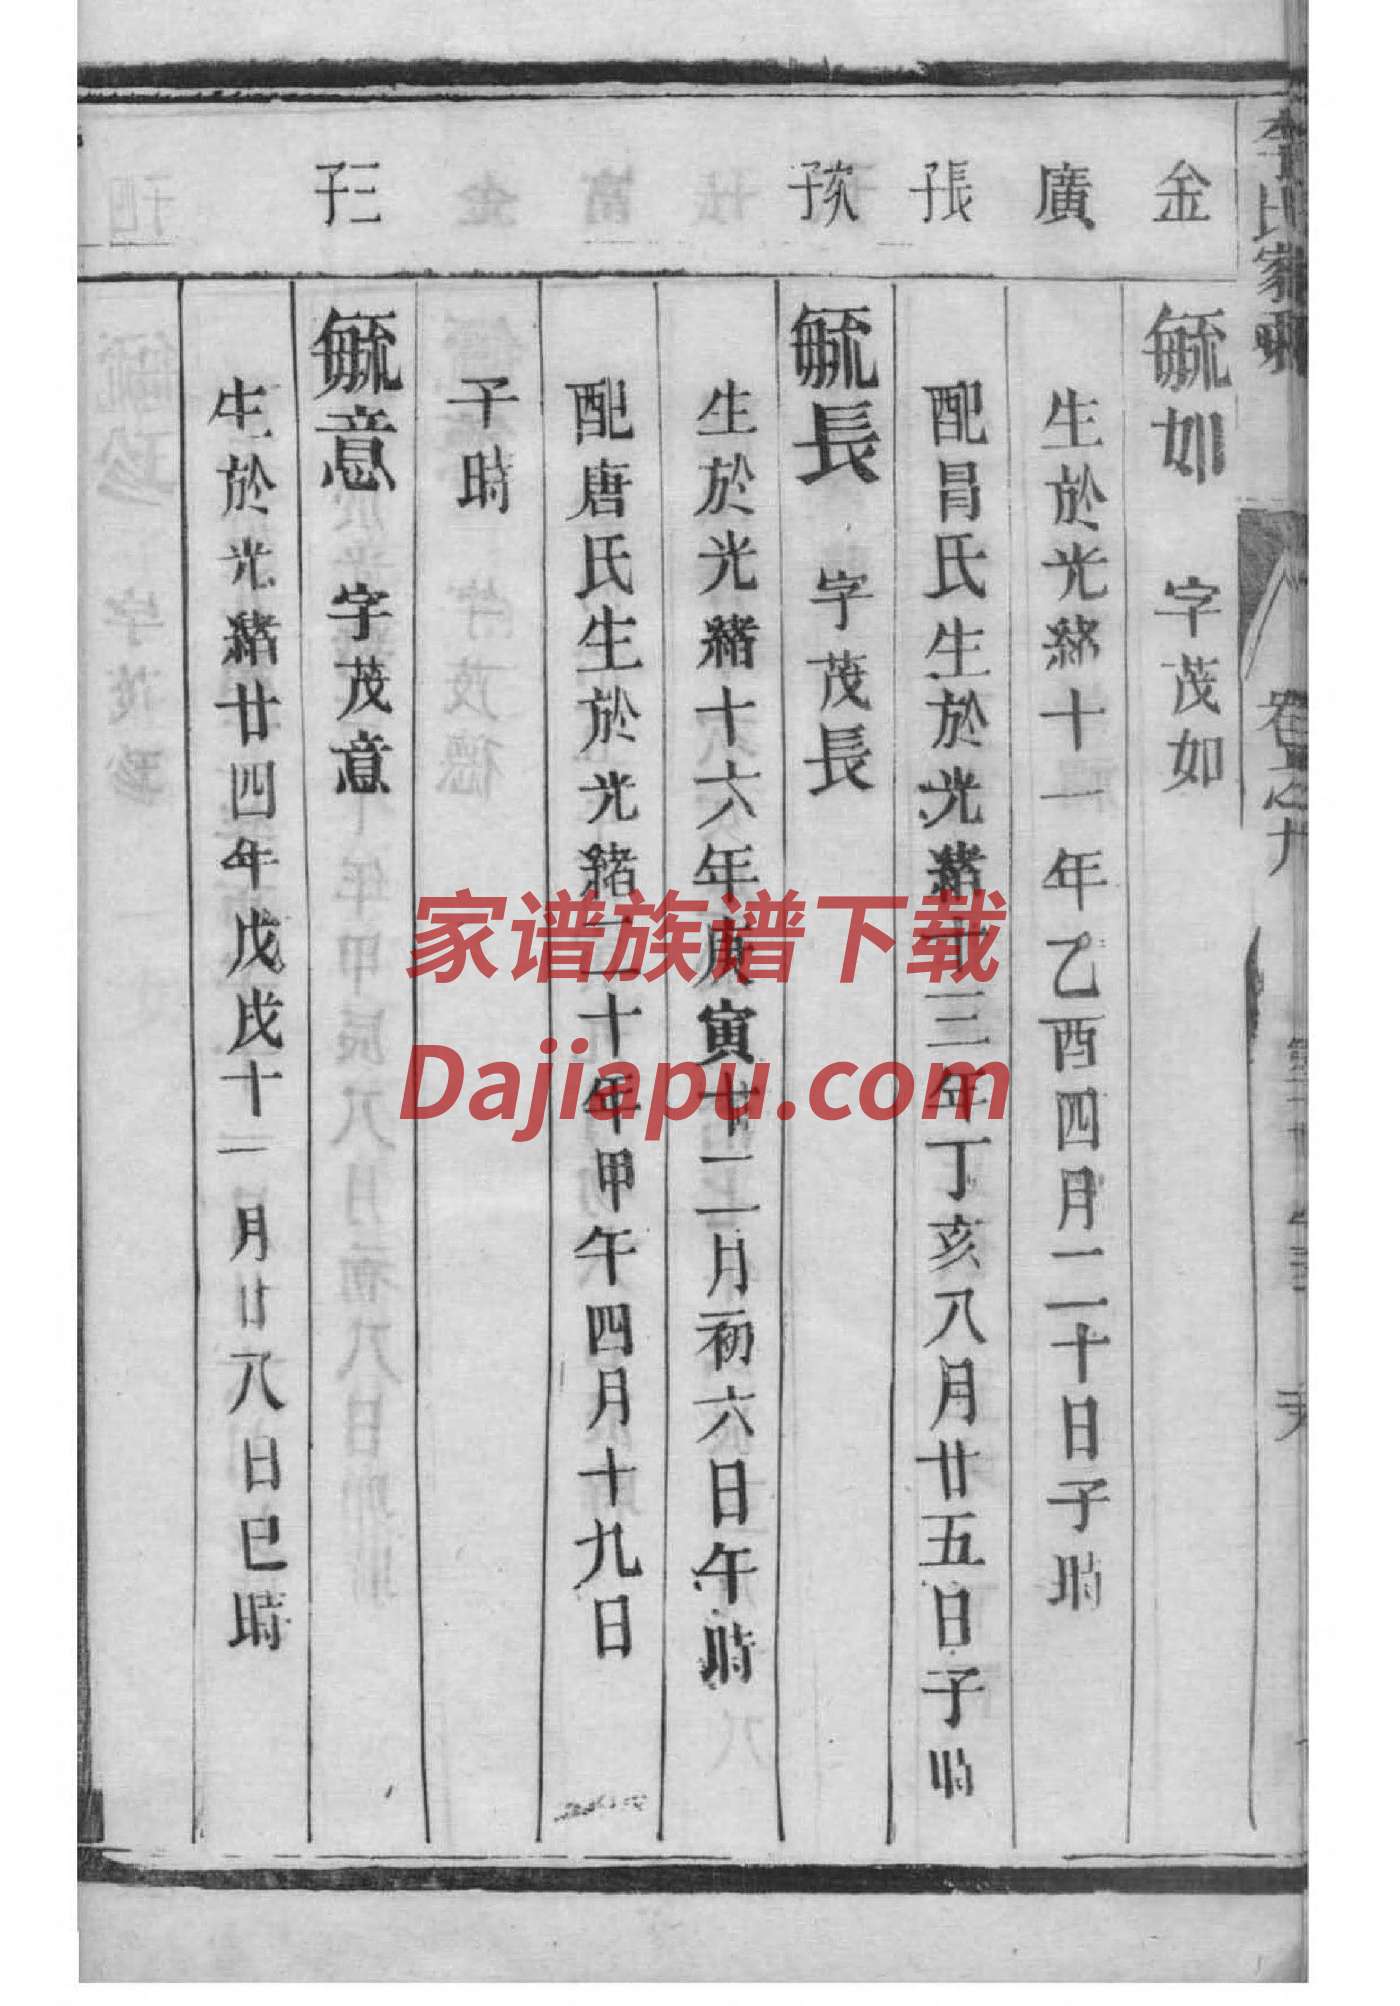 李氏家乘
卷之九
金
廣
張
孩
毓如 字茂如
生於光緒十一年乙酉四月二十日子時
配昌氏生於光緒十三年丁亥八月廿五日子時
毓長 字茂長
生於光緒十六年庚寅十二月初六日午時
配唐氏生於光緒二十年甲午四月十九日
子時
毓意 字茂意
生於光緒廿四年戊戌十一月廿八日巳時
家谱族谱下载
Dajiapu.com